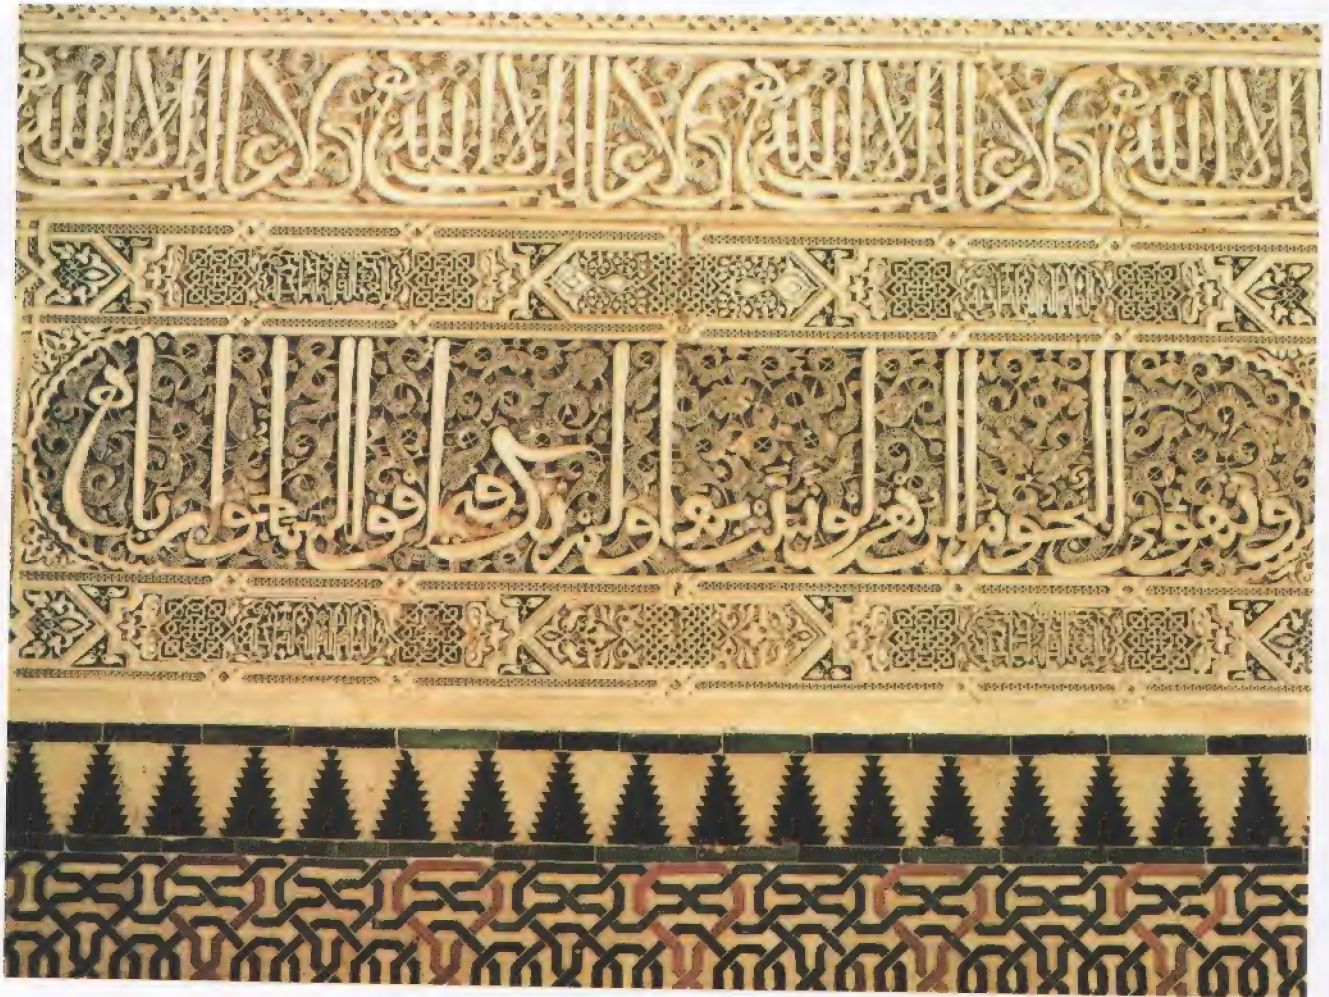 إلا الله ولا غالب إلا الله ولا غالب إلا الله ولا غالب إلا الله
وتهوى النجوم الزهر لو ثبتت بها ولم تك في افق السما جواريا